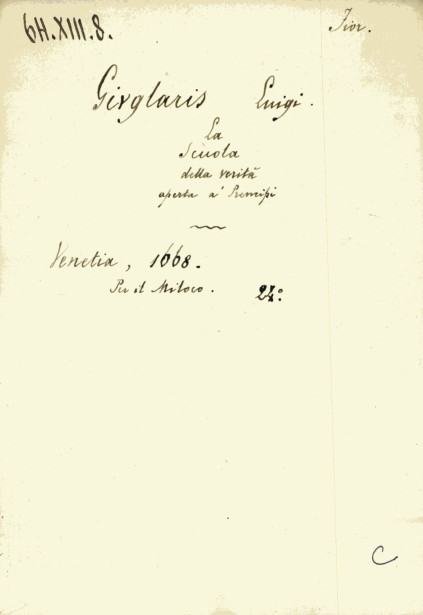 6H.XIII.8.
Fior.
Givglaris Luigi.
La
Scuola
della verità
aperta a' Prencipi
Venetia, 1668.
Per il Miloco. 24º
C